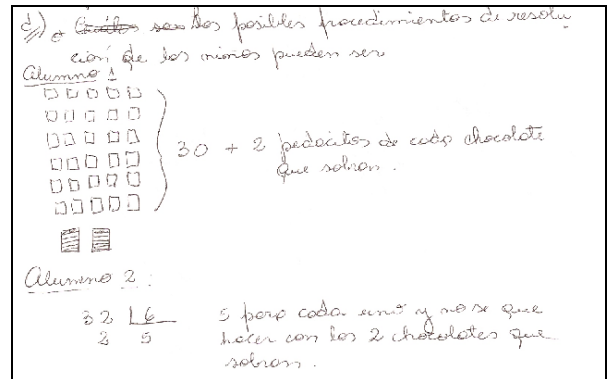 d) ~~Cuáles son~~ los posibles procedimientos de resolu
ción de los niños pueden ser
Alumno 1
30 + 2 pedacitos de cada chocolate
que sobran.
Alumno 2:
32 | 6 5 para cada uno y no se que
2 5 hacer con los 2 chocolates que
sobran.